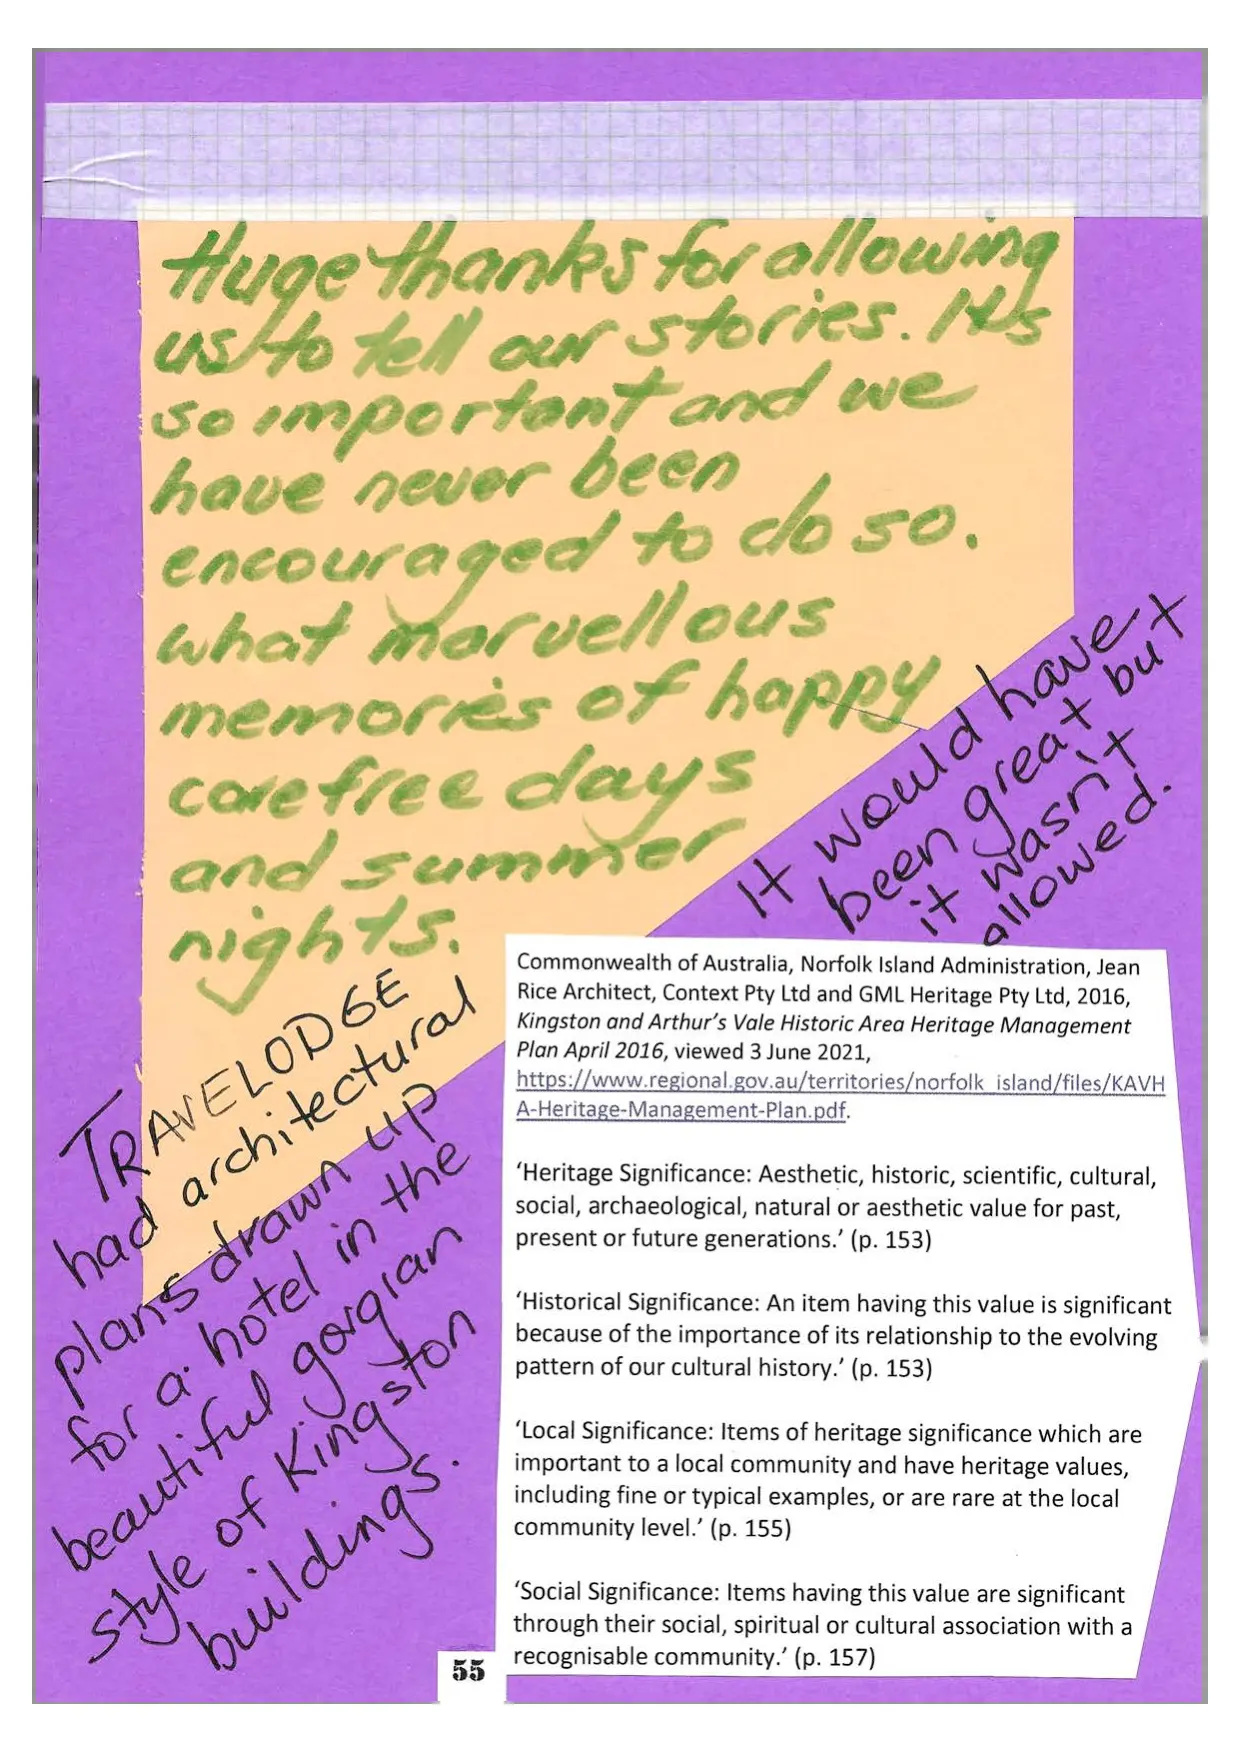 Huge thanks for allowing
us to tell our stories. It's
so important and we
have never been
encouraged to do so.
what marvellous
memories of happy
carefree days
and summer
nights.
It would have
been great but
it wasn't
allowed.
TRAVELODGE
had architectural
plans drawn up
for a hotel in the
beautiful gorgian
style of Kingston
buildings.
Commonwealth of Australia, Norfolk Island Administration, Jean
Rice Architect, Context Pty Ltd and GML Heritage Pty Ltd, 2016,
Kingston and Arthur's Vale Historic Area Heritage Management
Plan April 2016, viewed 3 June 2021,
https://www.regional.gov.au/territories/norfolk_island/files/KAVH
A-Heritage-Management-Plan.pdf.
‘Heritage Significance: Aesthetic, historic, scientific, cultural,
social, archaeological, natural or aesthetic value for past,
present or future generations.’ (p. 153)
‘Historical Significance: An item having this value is significant
because of the importance of its relationship to the evolving
pattern of our cultural history.’ (p. 153)
‘Local Significance: Items of heritage significance which are
important to a local community and have heritage values,
including fine or typical examples, or are rare at the local
community level.’ (p. 155)
‘Social Significance: Items having this value are significant
through their social, spiritual or cultural association with a
recognisable community.’ (p. 157)
55